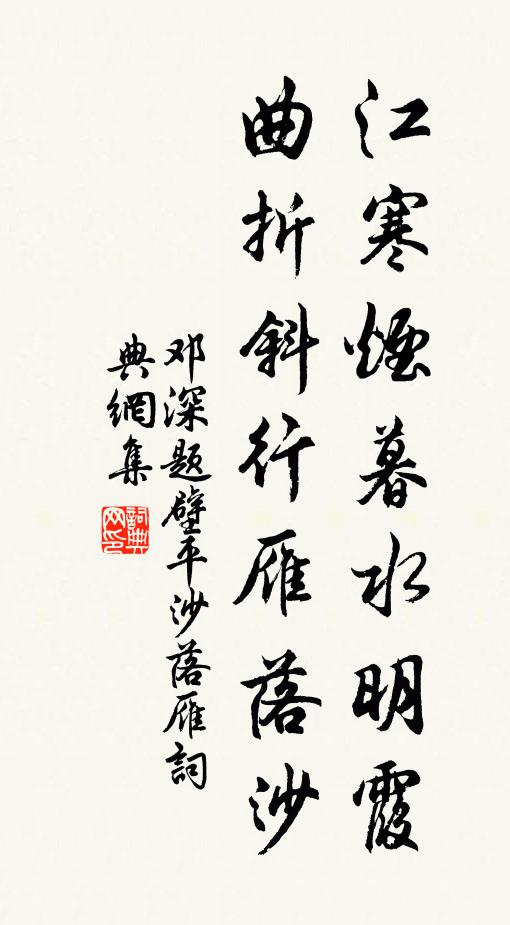 江寒煙暮水明霞
曲折斜行雁落沙
邓深题壁平沙落雁詞
典網集
詞典
网印